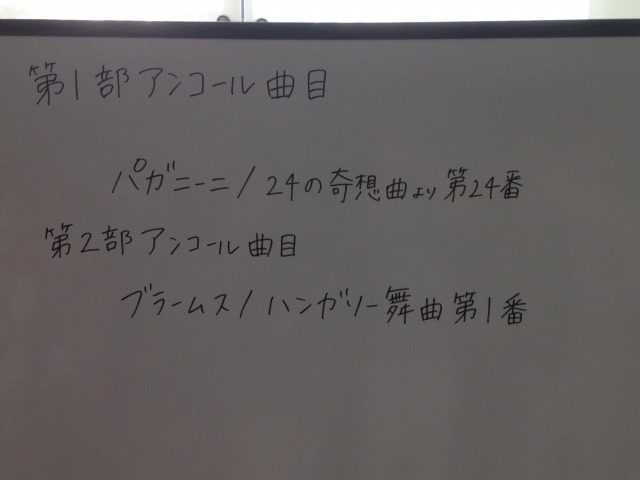 第1部アンコール曲目
パガニーニ/24の奇想曲より第24番
第2部アンコール曲目
ブラームス/ハンガリー舞曲第1番